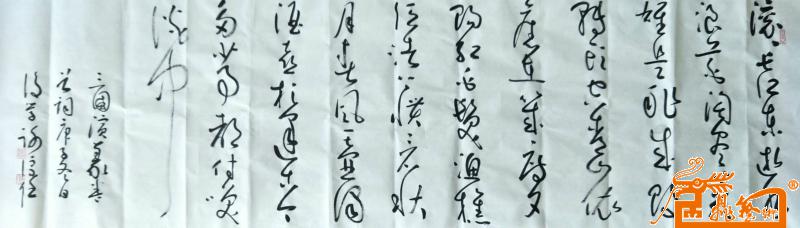 滚滚长江东逝水
浪花淘尽英
雄是非成败
转头空青山依
旧在几度夕
阳红白发渔樵
江渚上惯看秋
月春风一壶浊
酒喜相逢古今
多少事都付笑
谈中
三国演义卷
首词庚子冬日